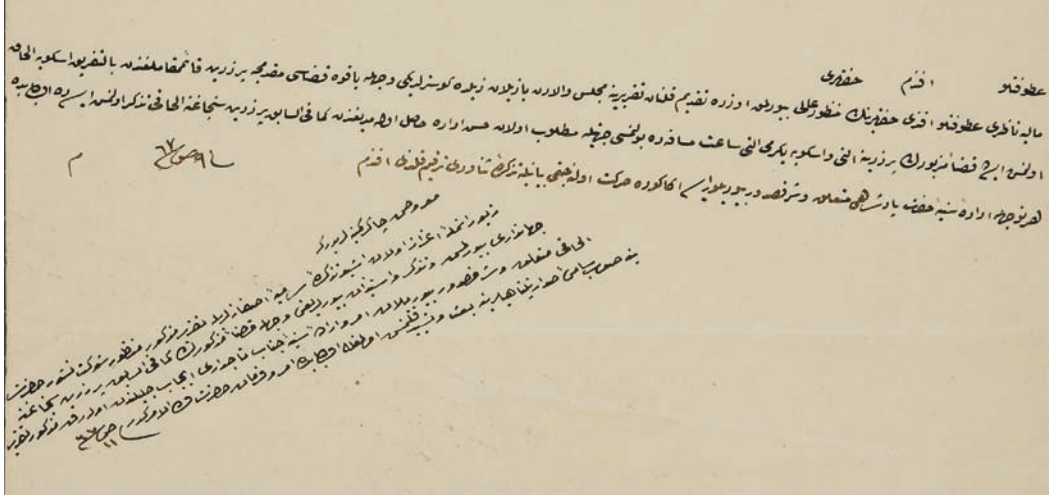 عطوفتلو افندم حضرتلری
ماليه ناظری عطوفتلو افندی حضرتلرينك منظور عالی بيورلمق اوزره تقديم قلنان تقريرينه مجلس والادن يازيلان ذيلده كوسترلديكی وجهله ياقوه قضاسی مقدمجه پرزرين قائممقاملغندن بالتفريق اسكوبه الحاق
اولنمش ايسه ده قضاء مزبورك پرزرينه التی واسكوبه يكرمی التی ساعت مسافه ده بولنمسی جهتيله مطلوب اولان حسن اداره حاصل اوله مديغندن كما فی السابق پرزرين سنجاغنه الحاقی تذكر اولنمش ايسه ده اولبابده
هر نوجهله اراده سنيه حضرت پادشاهی متعلق وشرفصدور بيوريلور ايسه اكا كوره حركت اولنه جغی بيانيله تذكره ثناوری ترقيم قلندی افندم
معروض چاكر كمينه لريدركه
زيور انامل اعزاز اولان اشبو تذكره سامیه اصفانه لريله تقرير مذكور منظور شوكتنشور حضرت
جهانداری بيورلمش وتذكر واستيذان بيورلديغی وجهله قضاء مذكورك كما فی السابق پرزرين سنجاغنه
الحاقی متعلق وشرفصدور بيوريلان امر واراده سنيه جناب تاجداری ايجاب جليلندن اوله رق مذكور تقرير
ينه صوب سامی اصفيلرينه اعاده قلنمش اولمغله اولبابده امر وفرمان حضرت ولی الامركدر